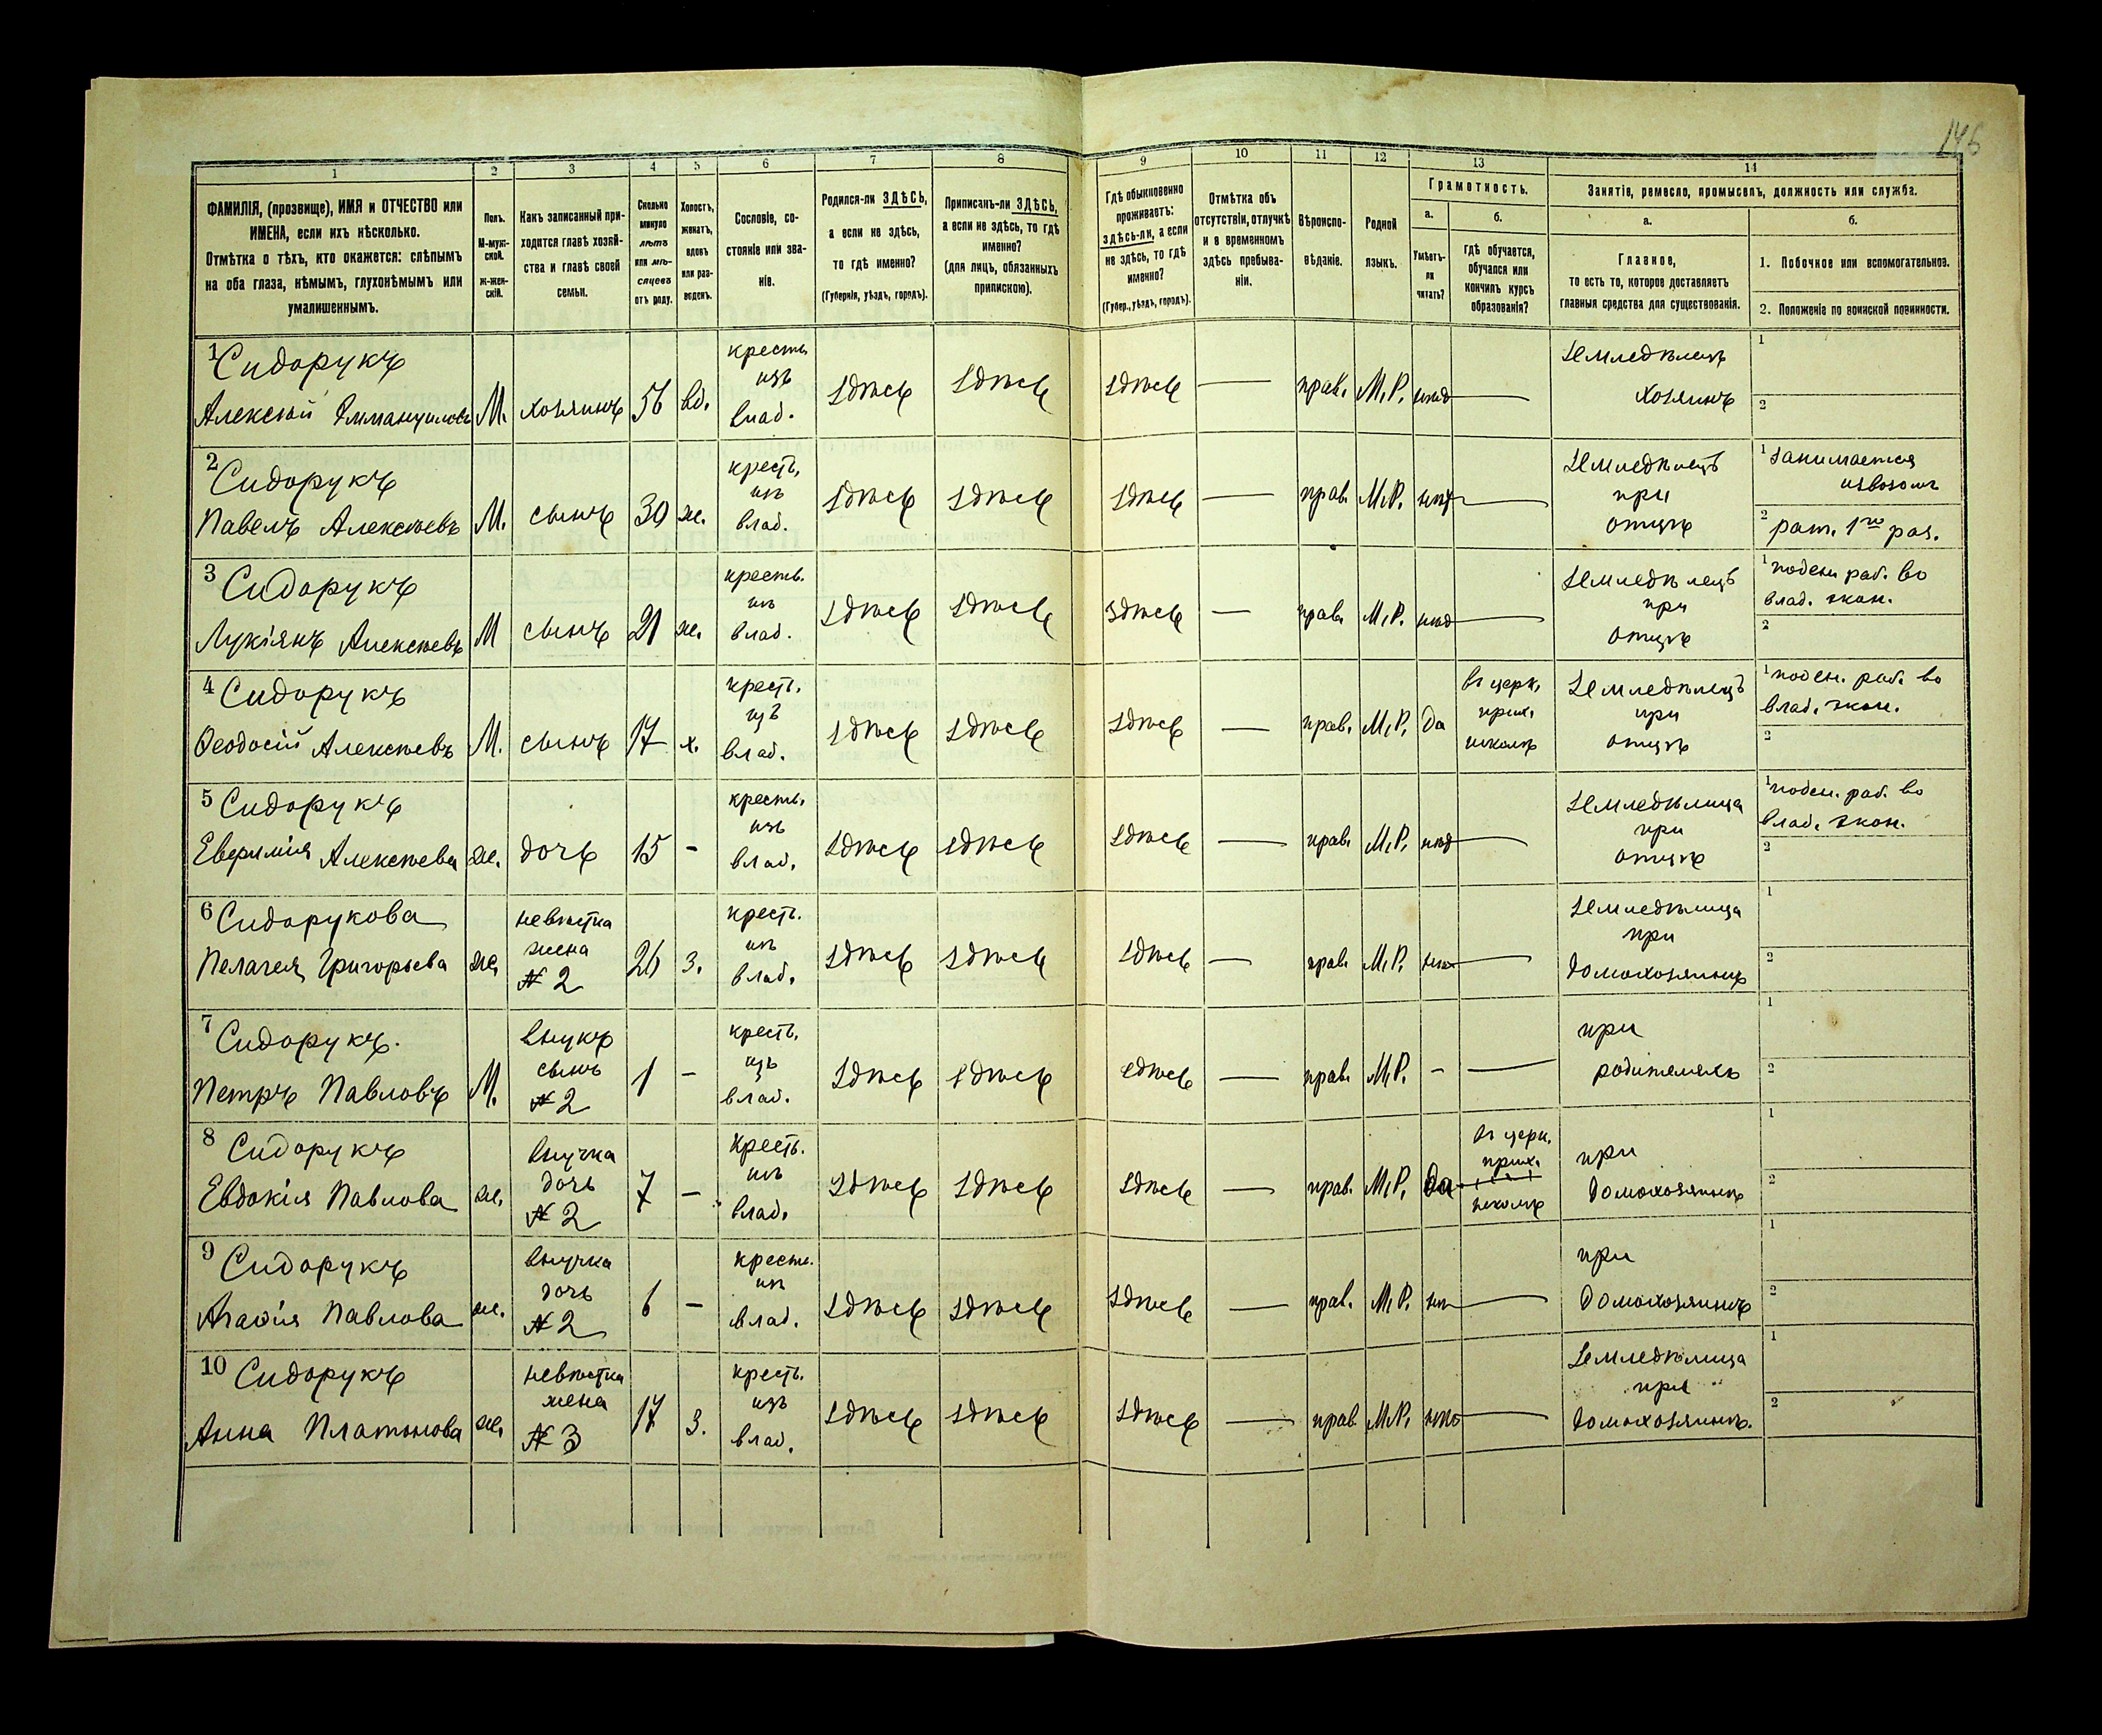 146
1 2 3 4 5 6 7 8 9 10 11 12 13 14
ФАМИЛІЯ, (прозвище), ИМЯ и ОТЧЕСТВО или
ИМЕНА, если ихъ нѣсколько.
Отмѣтка о тѣхъ, кто окажется: слѣпымъ
на оба глаза, нѣмымъ, глухонѣмымъ или
умалишеннымъ.
Полъ.
М-муж-
ской.
Ж-жен-
скій.
Какъ записанный при-
ходится главѣ хозяй-
ства и главѣ своей
семьи.
Сколько
минуло
лѣтъ
или мѣ-
сяцевъ
отъ роду.
Холостъ,
женатъ,
вдовъ
или раз-
веденъ.
Сословіе, со-
стояніе или зва-
ніе.
Родился-ли ЗДѢСЬ,
а если не здѣсь,
то гдѣ именно?
(Губернія, уѣздъ, городъ).
Приписанъ-ли ЗДѢСЬ,
а если не здѣсь, то гдѣ
именно?
(для лицъ, обязанныхъ
припискою).
Гдѣ обыкновенно
проживаетъ:
здѣсь-ли, а если
не здѣсь, то гдѣ
именно?
(Губер., уѣздъ, городъ).
Отмѣтка объ
отсутствіи, отлучкѣ
и о временномъ
здѣсь пребыва-
ніи.
Вѣроиспо-
вѣданіе.
Родной
языкъ.
Грамотность.
а.
Умѣетъ-
ли
читать?
б.
Гдѣ обучается,
обучался или
кончилъ курсъ
образованія?
Занятіе, ремесло, промыселъ, должность или служба.
а.
Главное,
то есть то, которое доставляетъ
главныя средства для существованія.
б.
1. Побочное или вспомогательное.
2. Положеніе по воинской повинности.
1 Сидорукъ
Алексѣй Эммануиловъ М. хозяинъ 56 вд.
крестъ
изъ
влад.
здѣсь здѣсь здѣсь — прав. М.Р. —
Земледѣлецъ
хозяинъ
1
2
2 Сидорукъ
Павелъ Алексѣевъ М. сынъ 30 ж.
крест.
изъ
влад.
здѣсь здѣсь здѣсь — прав. М.Р. нѣтъ —
Земледѣлецъ
при
отцѣ
1 занимается
извозомъ
2 рат. 1го раз.
3 Сидорукъ
Лукіянъ Алексѣевъ М сынъ 21 ж.
кресть.
изъ
влад.
здѣсь здѣсь здѣсь — прав. М.Р. —
Земледѣлецъ
при
отцѣ
1 поден. раб. во
влад. экон.
2
4 Сидорукъ
Ѳеодосій Алексѣевъ М. сынъ 17 х.
крест.
изъ
влад.
здѣсь здѣсь здѣсь — прав. М.Р. да
въ церк.
прих.
школѣ
Земледѣлецъ
при
отцѣ
1 поден. раб. во
влад. экон.
2
5 Сидорукъ
Евфимія Алексѣева ж. дочь 15 -
кресть.
изъ
влад.
здѣсь здѣсь здѣсь — прав. М.Р. —
Земледѣлица
при
отцѣ
1 поден. раб. во
влад. экон.
2
6 Сидорукова
Пелагея Григорьева ж.
невѣстка
жена
№ 2
26 з.
крест.
изъ
влад.
здѣсь здѣсь здѣсь — прав. М.Р. —
Земледѣлица
при
домохозяинѣ
1
2
7 Сидорукъ.
Петръ Павловъ М.
внукъ
сынъ
№ 2
1 -
крест.
изъ
влад.
здѣсь здѣсь здѣсь — прав. М.Р. - —
при
родителяхъ
1
2
8 Сидорукъ
Евдокія Павлова ж.
внучка
дочь
№ 2
7 -
крест.
изъ
влад.
здѣсь здѣсь здѣсь — прав. М.Р.
въ церк.
прих.
школѣ
при
домохозяинѣ
1
2
9 Сидорукъ
Агафія Павлова ж.
внучка
дочь
№ 2
6 -
кресть.
изъ
влад.
здѣсь здѣсь здѣсь — прав. М.Р. —
при
домохозяинѣ
1
2
10 Сидорукъ
Анна Платонова ж.
невѣстка
жена
№ 3
17 з.
крест.
изъ
влад.
здѣсь здѣсь здѣсь — прав М.Р. нѣтъ —
Земледѣлица
при
домохозяинѣ.
1
2